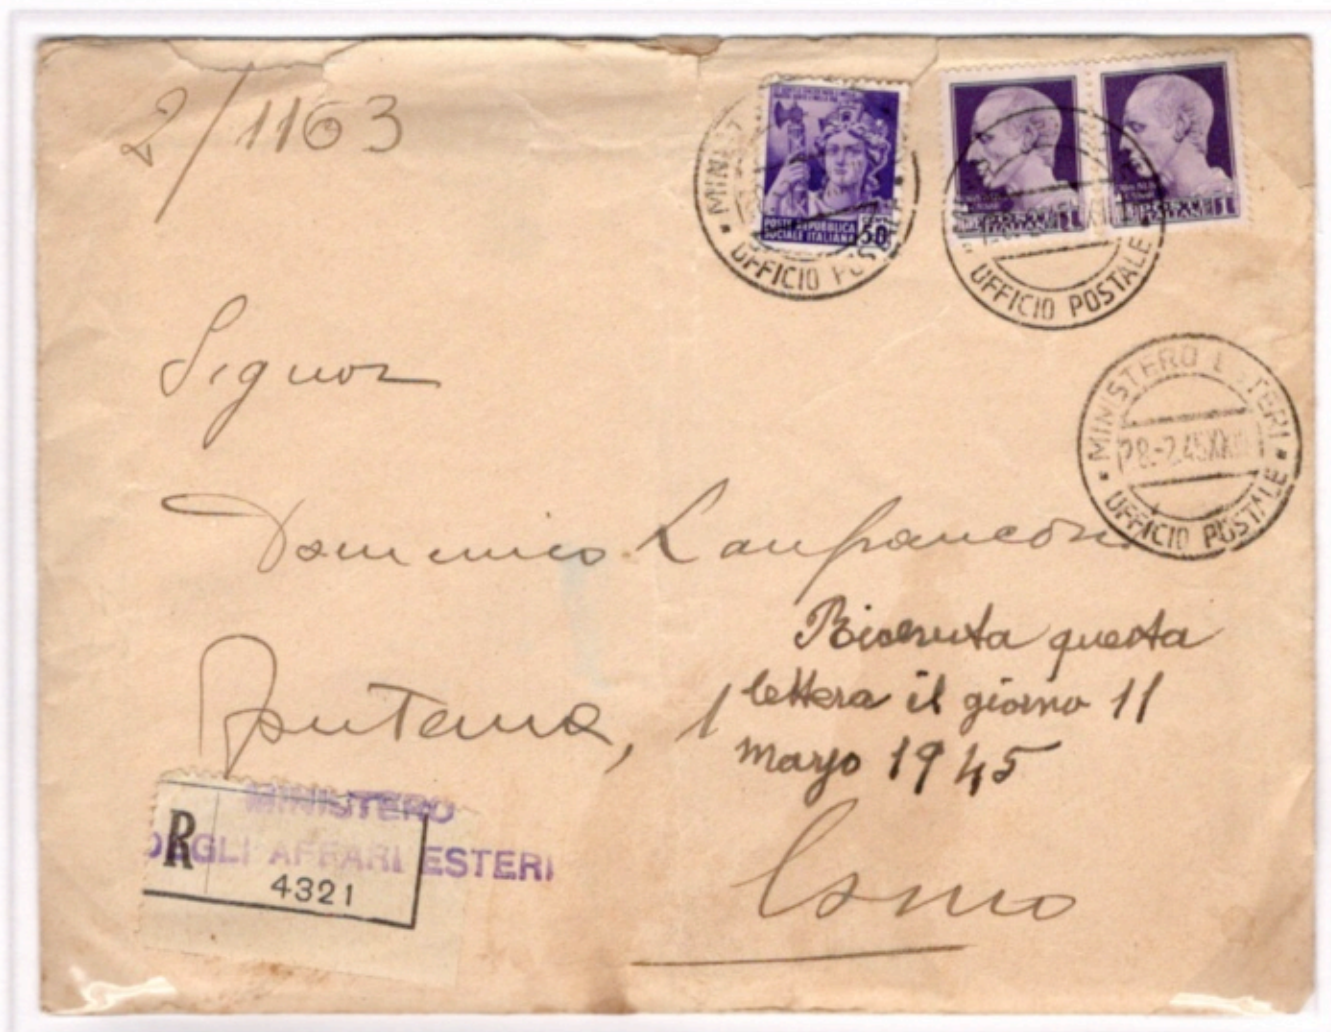 2/1163
POSTE REPUBBLICA
SOCIALE ITALIANA 50
MINISTERO
UFFICIO POSTALE
UFFICIO POSTALE
MINISTERO ESTERI
28.-2.45XX
UFFICIO POSTALE
Signor
Domenico Lanfranconi
Ricevuta questa
lettera il giorno 11
marzo 1945
Fontana, 1
MINISTERO
DEGLI AFFARI ESTERI
R
4321
Como